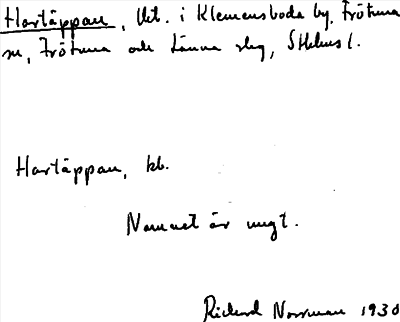 Hartäppan, Vret. i Klemensboda by, Frötuna
sn, Frötuna och Länna slg, Sthlms l.
Hartäppan, kb.
Namnet är ungt.
Richard Norrman 1930